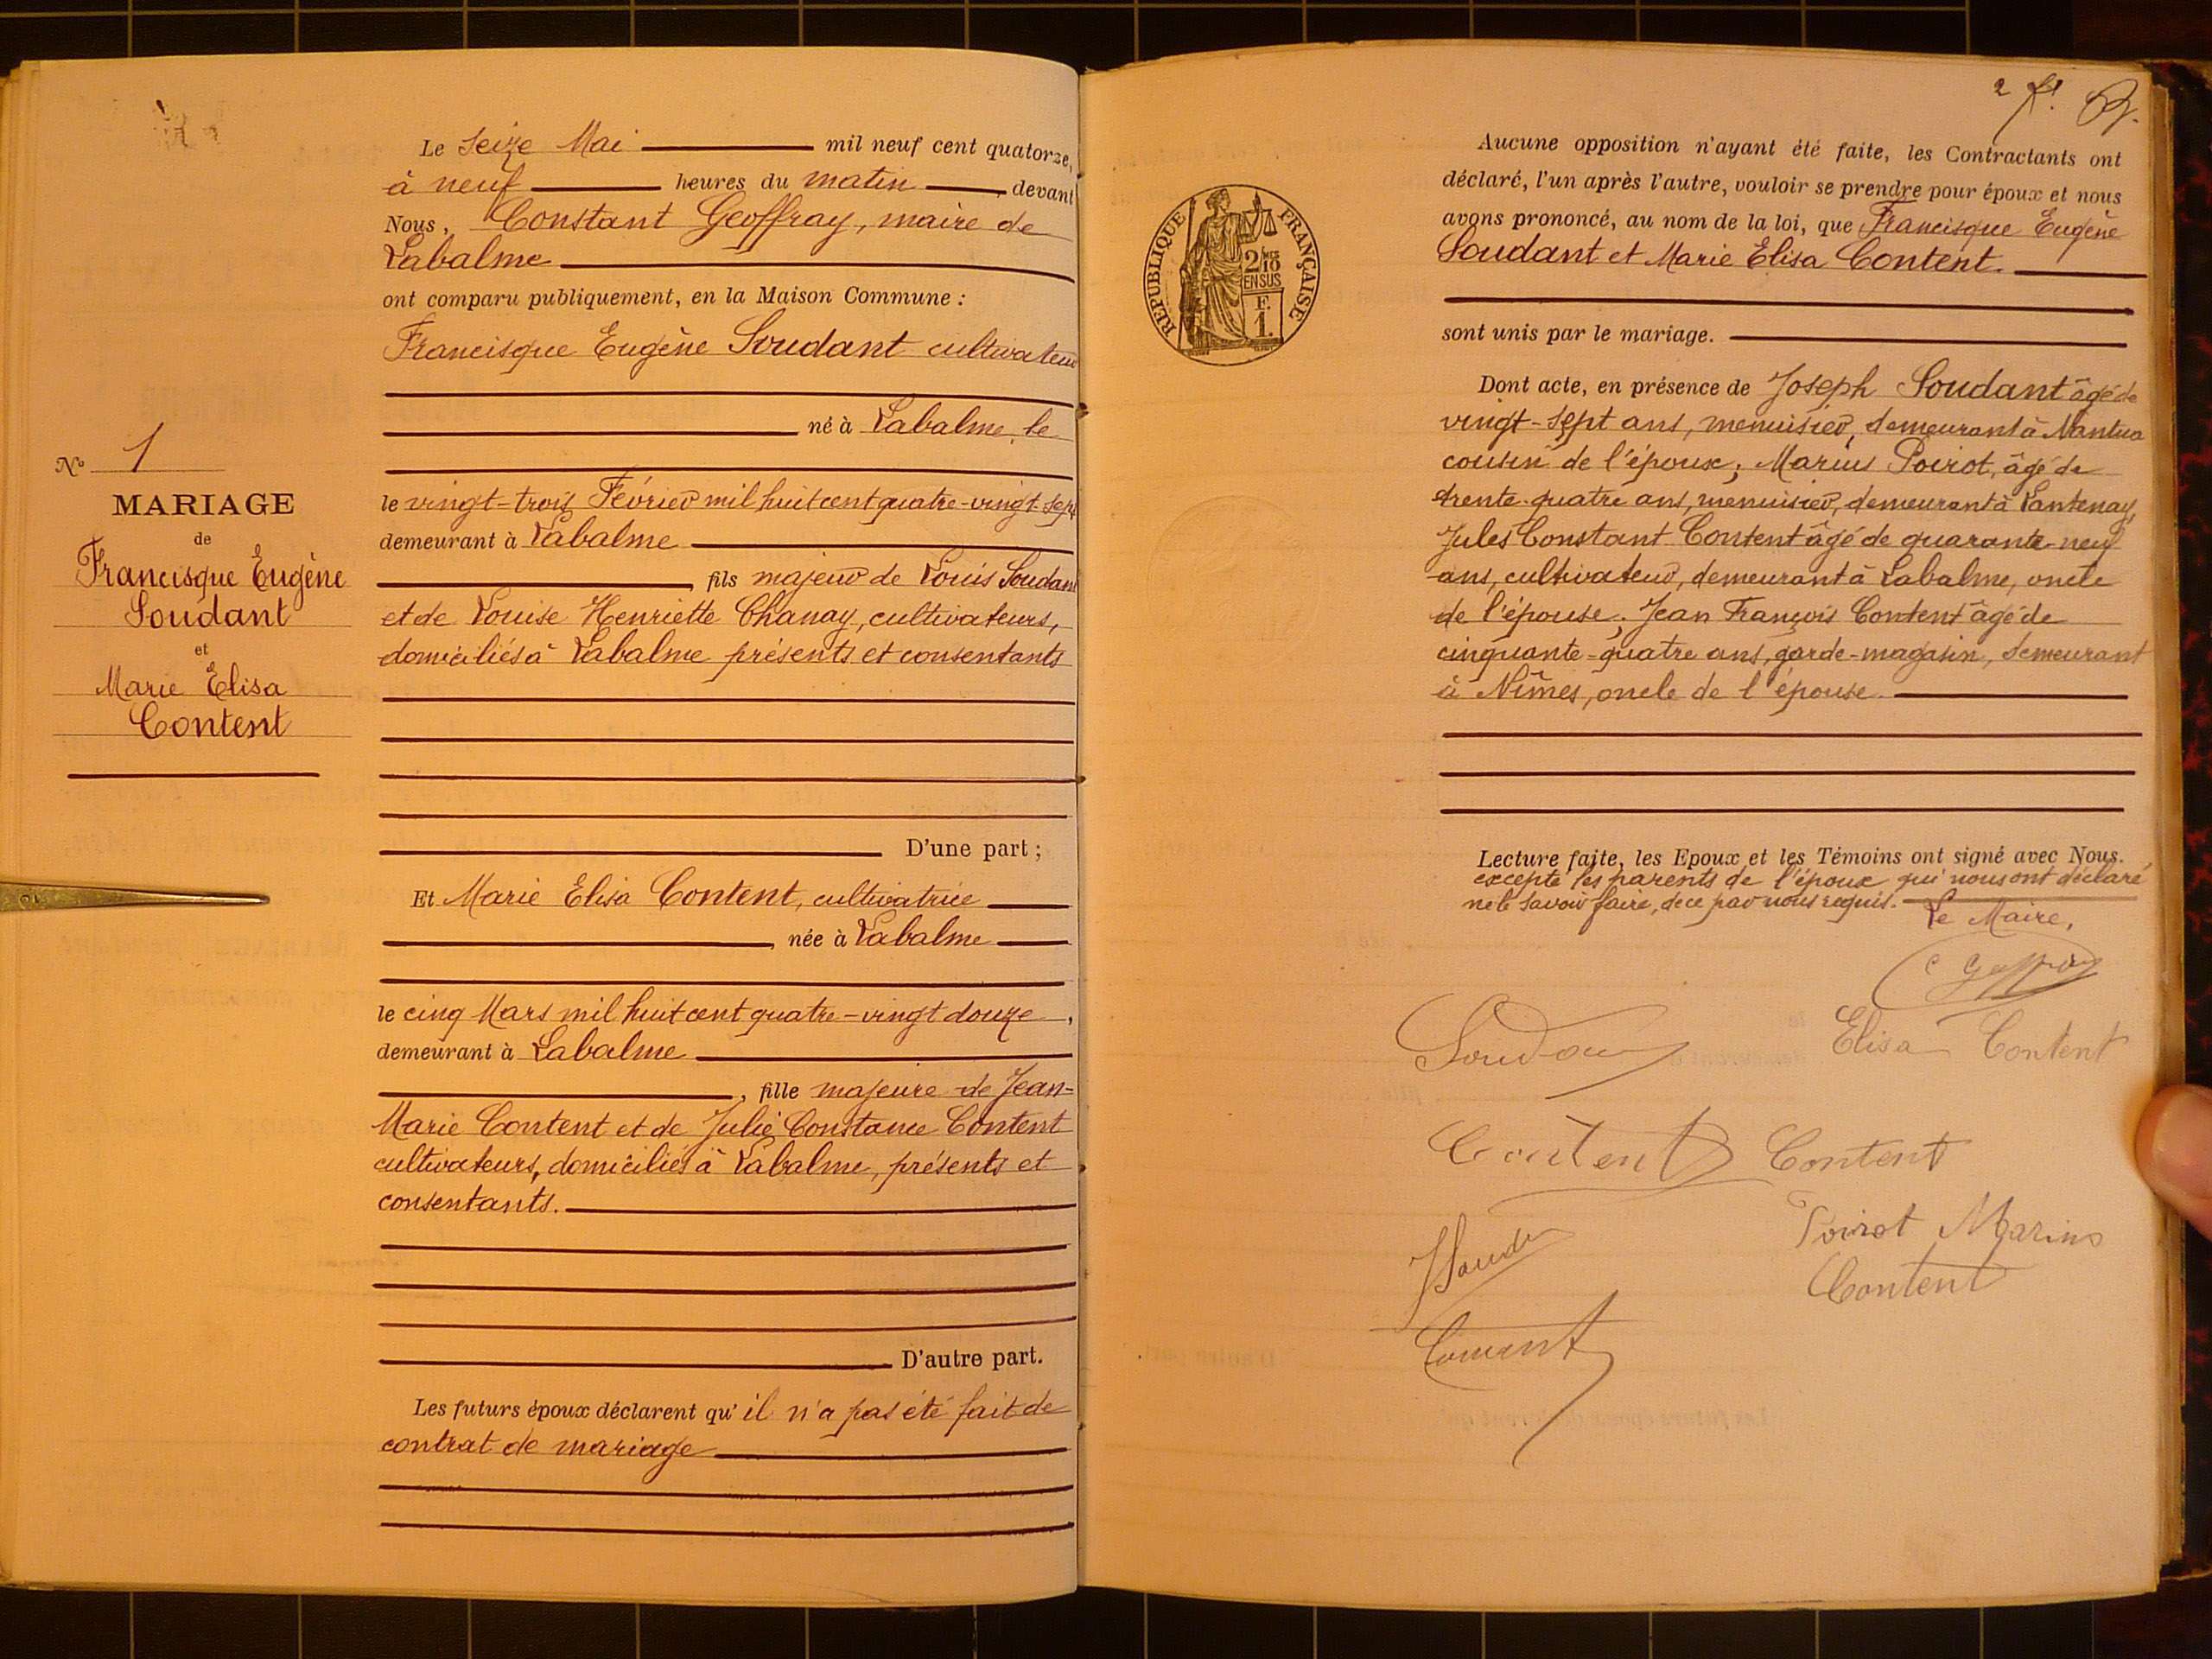 Le seize Mai mil neuf cent quatorze,
à neuf heures du matin, devant
Nous, Constant Geoffray, maire de
Labalme
ont comparu publiquement, en la Maison Commune :
Francisque Eugène Soudant cultivateur
né à Labalme, le
le vingt-trois Février mil huit cent quatre-vingt-sept
demeurant à Labalme
, fils majeur de Louis Soudant
et de Louise Henriette Chanay, cultivateurs,
domiciliés à Labalme présents et consentants
D'une part ;
Et Marie Elisa Content, cultivatrice
, née à Labalme
le cinq Mars mil huit cent quatre-vingt douze,
demeurant à Labalme
, fille majeure de Jean-
Marie Content et de Julie Constance Content
cultivateurs, domiciliés à Labalme, présents et
consentants.
D'autre part.
Les futurs époux déclarent qu'il n'a pas été fait de
contrat de mariage
No 1
MARIAGE
de
Francisque Eugène
Soudant
et
Marie Elisa
Content
2 f.
RÉPUBLIQUE FRANÇAISE
2/10
EN SUS
F.
1.
Aucune opposition n'ayant été faite, les Contractants ont
déclaré, l'un après l'autre, vouloir se prendre pour époux et nous
avons prononcé, au nom de la loi, que Francisque Eugène
Soudant et Marie Elisa Content.
sont unis par le mariage.
Dont acte, en présence de Joseph Soudant âgé de
vingt-sept ans, menuisier, demeurant à Nantua
cousin de l'époux; Marius Poirot, âgé de
trente-quatre ans, menuisier, demeurant à Lantenay,
Jules Constant Content âgé de quarante-neuf
ans, cultivateur, demeurant à Labalme, oncle
de l'épouse; Jean François Content âgé de
cinquante-quatre ans, garde-magasin, demeurant
à Nîmes, oncle de l'épouse.
Lecture faite, les Epoux et les Témoins ont signé avec Nous.
excepté les parents de l'époux qui nous ont déclaré
ne le savoir faire, de ce par nous requis.
Le Maire,
C Geoffray
Soudant
Elisa Content
Content Content
J Soudan
Poirot Marius
Content